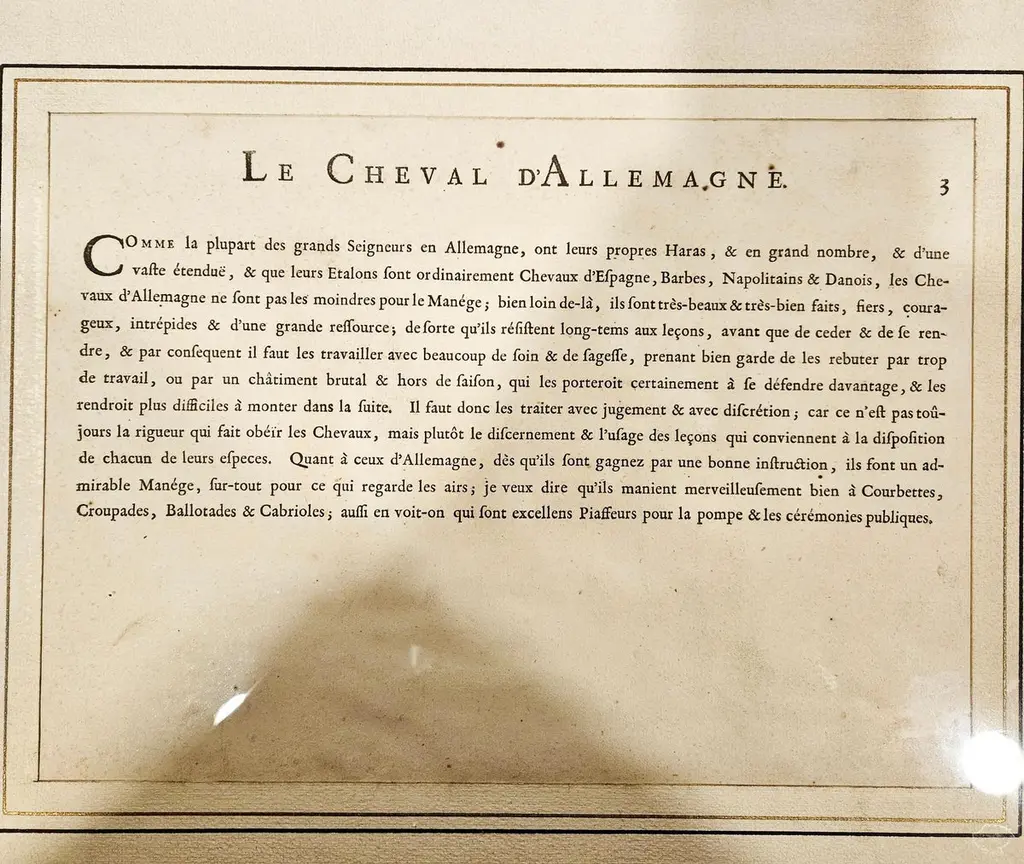 LE CHEVAL D'ALLEMAGNE.
3
COMME la plupart des grands Seigneurs en Allemagne, ont leurs propres Haras, & en grand nombre, & d'une
vaſte étenduë, & que leurs Etalons ſont ordinairement Chevaux d'Eſpagne, Barbes, Napolitains & Danois, les Che-
vaux d'Allemagne ne ſont pas les moindres pour le Manége; bien loin de-là, ils ſont très-beaux & très-bien faits, fiers, coura-
geux, intrépides & d'une grande reſſource; de ſorte qu'ils réſiſtent long-tems aux leçons, avant que de ceder & de ſe ren-
dre, & par conſequent il faut les travailler avec beaucoup de ſoin & de ſageſſe, prenant bien garde de les rebuter par trop
de travail, ou par un châtiment brutal & hors de ſaiſon, qui les porteroit certainement à ſe défendre davantage, & les
rendroit plus difficiles à monter dans la ſuite. Il faut donc les traiter avec jugement & avec diſcrétion; car ce n'eſt pas toû-
jours la rigueur qui fait obéïr les Chevaux, mais plutôt le diſcernement & l'uſage des leçons qui conviennent à la diſpoſition
de chacun de leurs eſpeces. Quant à ceux d'Allemagne, dès qu'ils ſont gagnez par une bonne inſtruction, ils font un ad-
mirable Manége, ſur-tout pour ce qui regarde les airs; je veux dire qu'ils manient merveilleuſement bien à Courbettes,
Croupades, Ballotades & Cabrioles; auſſi en voit-on qui ſont excellens Piaffeurs pour la pompe & les cérémonies publiques.